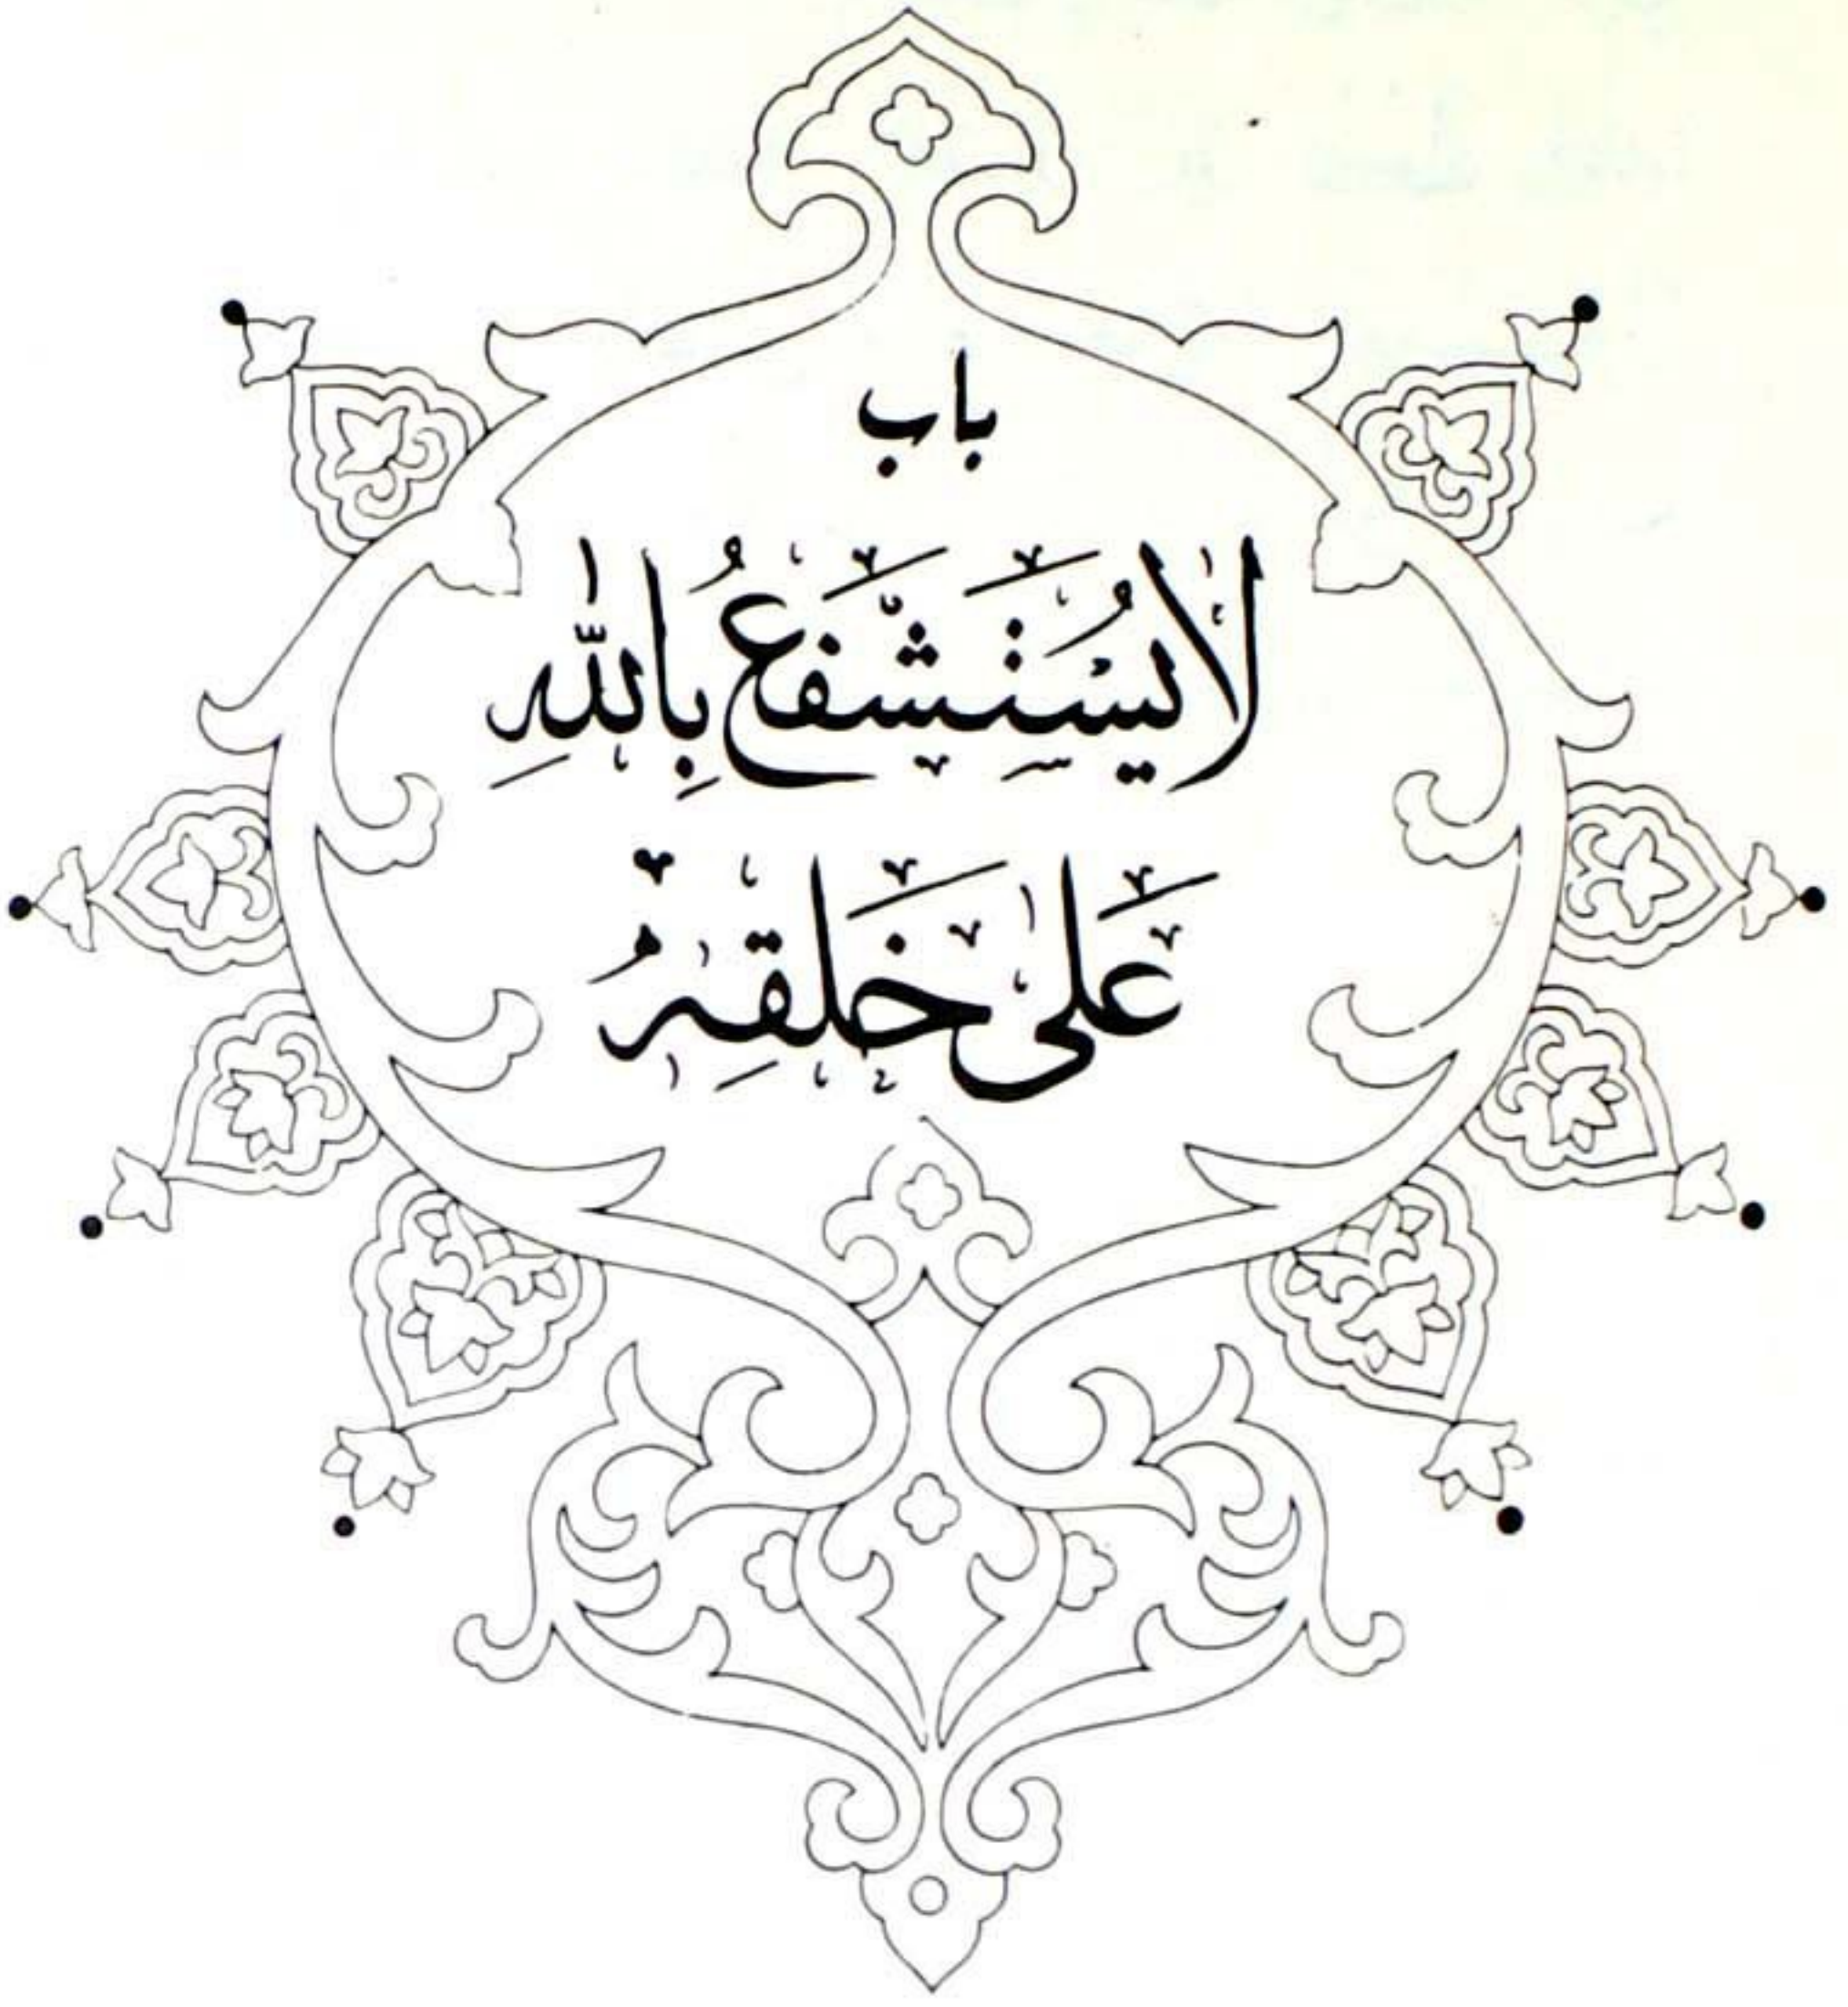 باب
لا يُسْتَشْفَعُ بِاللّٰهِ
عَلى خَلقِهِ